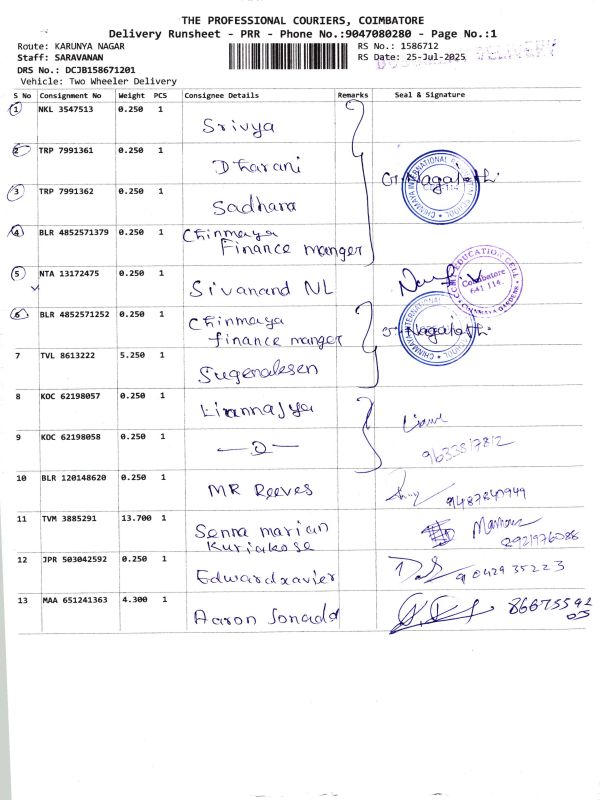 THE PROFESSIONAL COURIERS, COIMBATORE
Delivery Runsheet - PRR - Phone No.:9047080280 - Page No.:1
Route: KARUNYA NAGAR
RS No.: 1586712
Staff: SARAVANAN
RS Date: 25-Jul-2025
DELIVERY
DRS No.: DCJB158671201
Vehicle: Two Wheeler Delivery
S No Consignment No Weight PCS Consignee Details Remarks Seal & Signature
1 NKL 3547513 0.250 1 Srivya
2 TRP 7991361 0.250 1 Dharani
3 TRP 7991362 0.250 1 Sadhana
G. Nagajothi
CHINMAYA INTERNATIONAL SCHOOL
4 BLR 4852571379 0.250 1 Chinmaya
Finance manger
5 NTA 13172475 0.250 1 Sivanand NL
EDUCATION CELL
Coimbatore
641 114.
CHINMAYA GARDENS
6 BLR 4852571252 0.250 1 Chinmaya
finance manger
G. Nagajothi
7 TVL 8613222 5.250 1
8 KOC 62198057 0.250 1
9 KOC 62198058 0.250 1
9633817812
10 BLR 120148620 0.250 1 MR Reeves
9487840949
11 TVM 3885291 13.700 1 Senna marian
Kuriakose
2921976088
12 JPR 503042592 0.250 1 Edwardxavier
9042935223
13 MAA 651241363 4.300 1 Aaron Sonadd
86675592
05